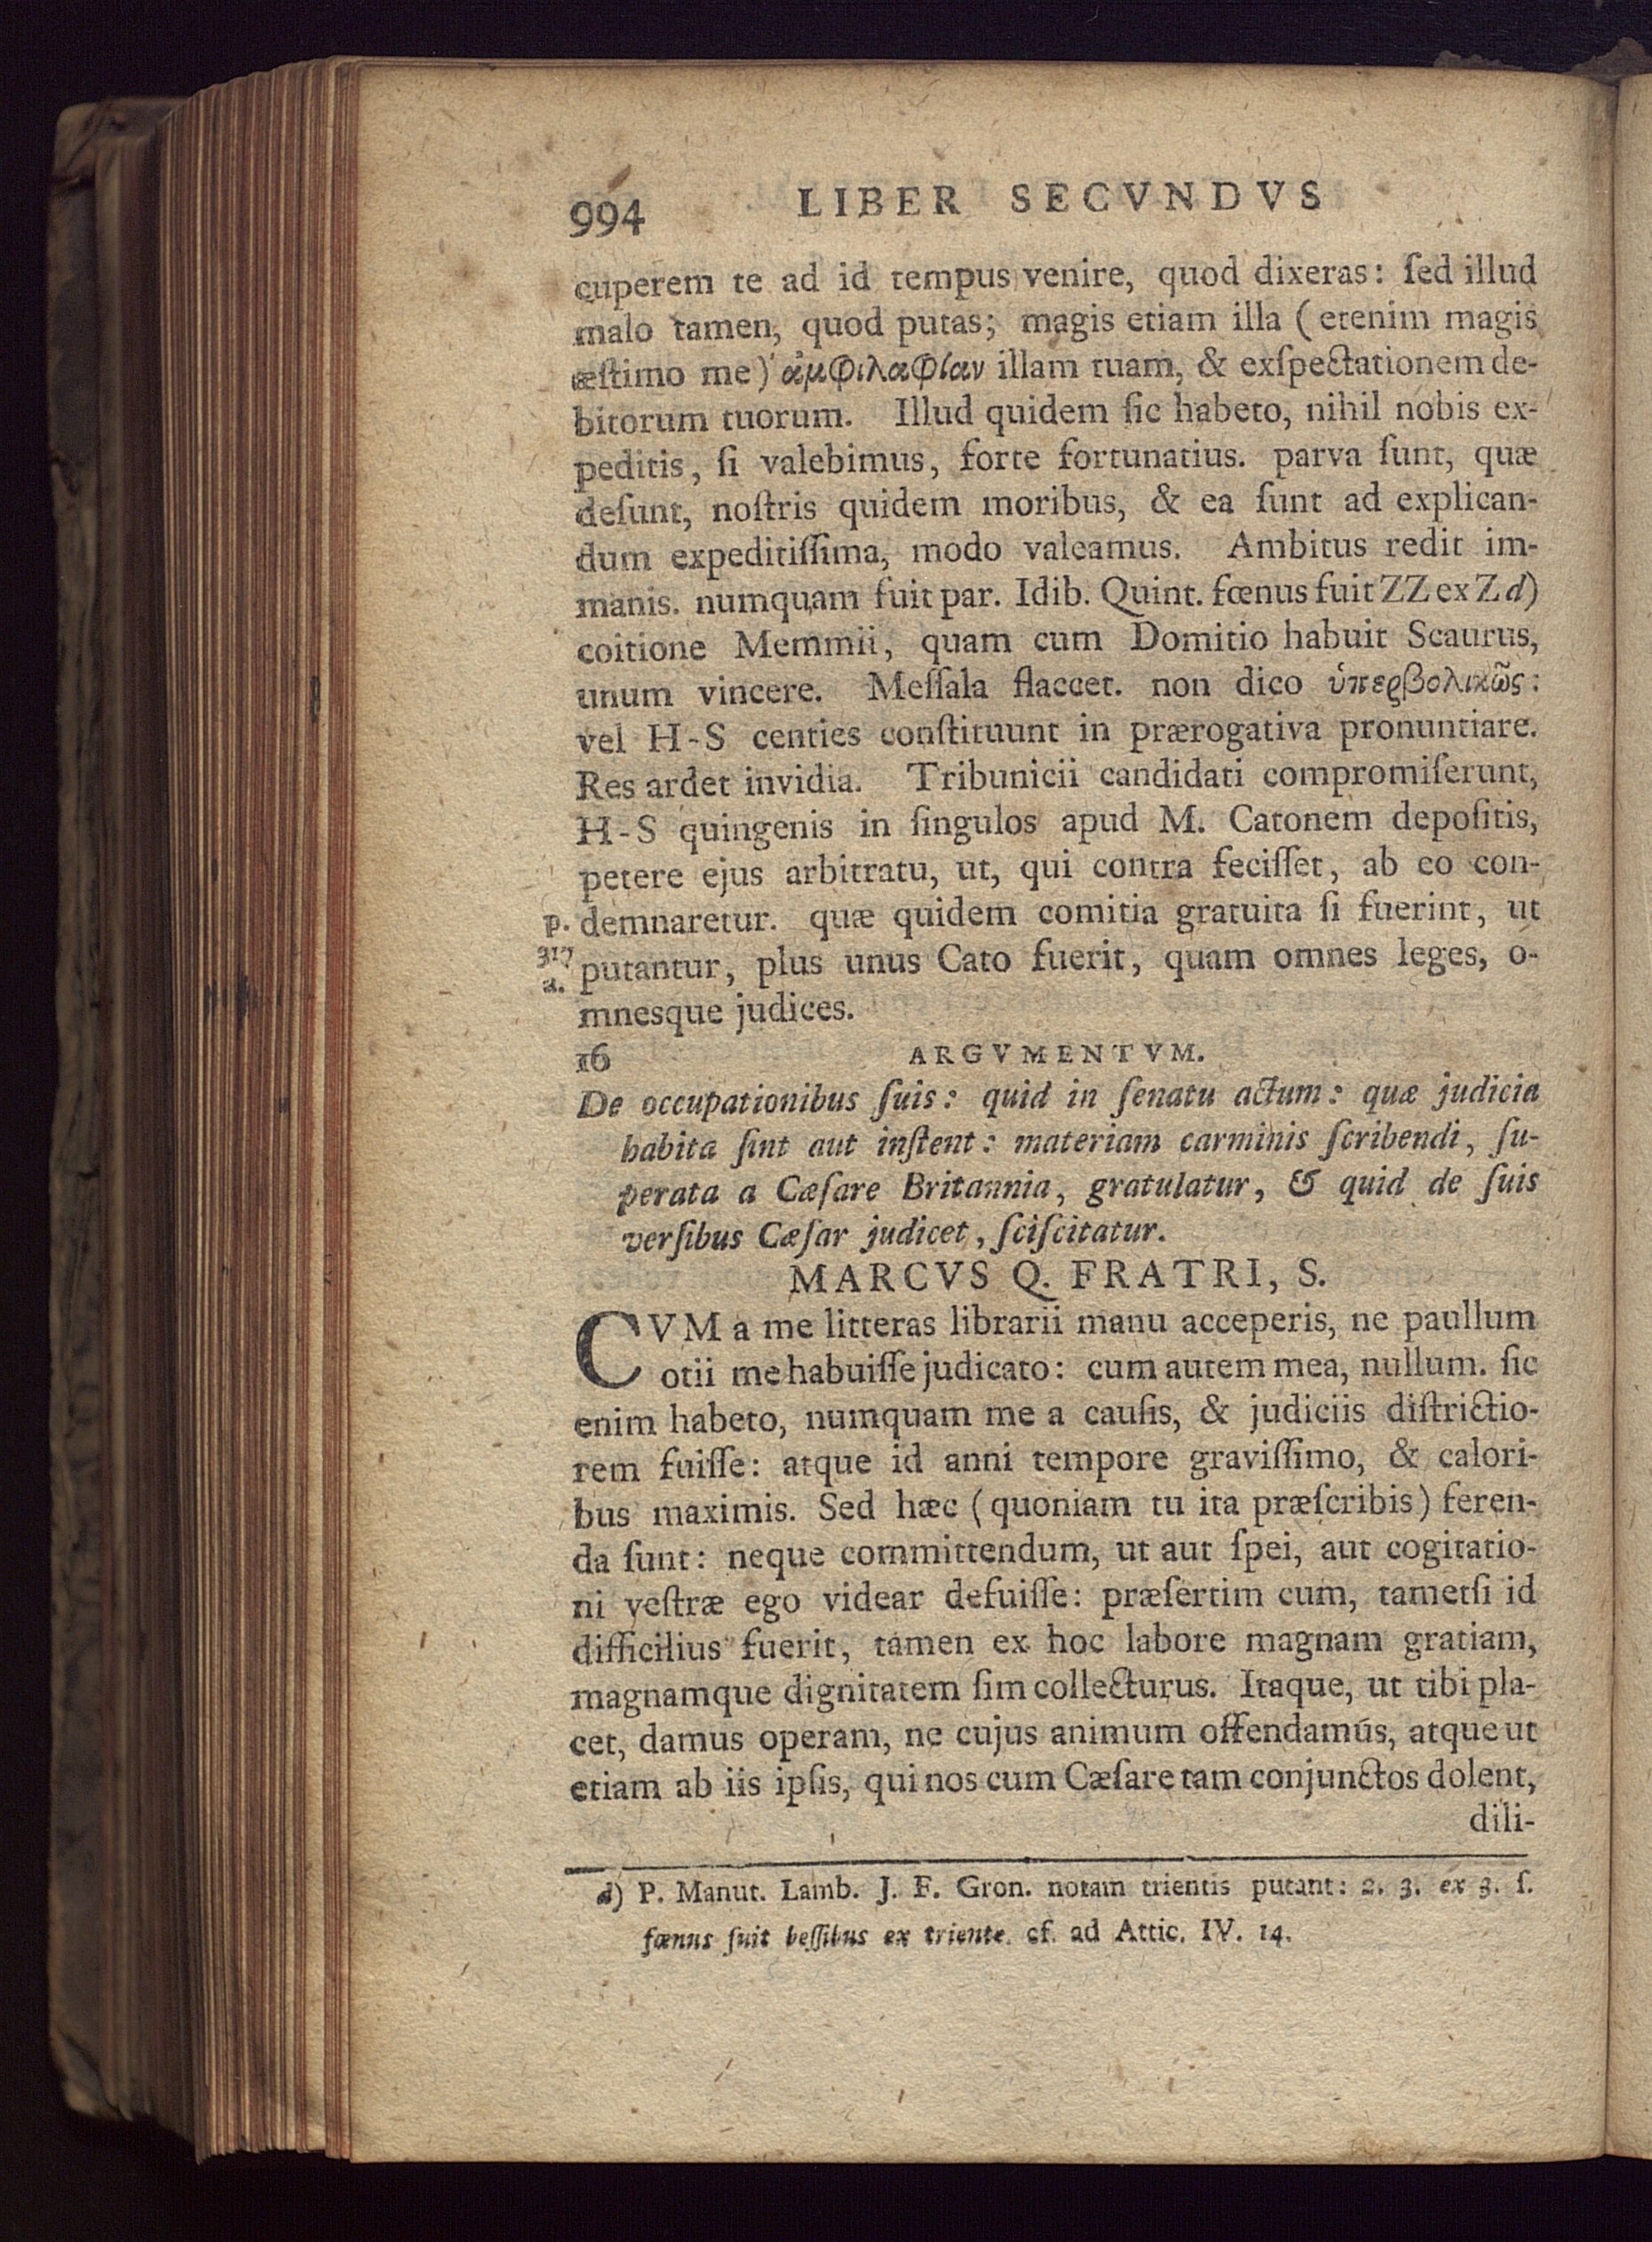 994 LIBER SECVNDVS
cuperem te ad id tempus venire, quod dixeras: ſed illud
malo tamen, quod putas; magis etiam illa (etenim magis
æſtimo me) ἀμφιλαφίαν illam tuam, & exſpectationem de-
bitorum tuorum. Illud quidem ſic habeto, nihil nobis ex-
peditis, ſi valebimus, forte fortunatius. parva ſunt, quæ
deſunt, noſtris quidem moribus, & ea ſunt ad explican-
dum expeditiſſima, modo valeamus. Ambitus redit im-
manis. numquam fuit par. Idib. Quint. fœnus fuit ZZ ex Z d)
coitione Memmii, quam cum Domitio habuit Scaurus,
unum vincere. Meſſala flaccet. non dico ὑπερβολικῶς:
vel H-S centies conſtituunt in prærogativa pronuntiare.
Res ardet invidia. Tribunicii candidati compromiſerunt,
H-S quingenis in ſingulos apud M. Catonem depoſitis,
petere ejus arbitratu, ut, qui contra feciſſet, ab eo con-
p. demnaretur. quæ quidem comitia gratuita ſi fuerint, ut
317 putantur, plus unus Cato fuerit, quam omnes leges, o-
a. mnesque judices.
16 ARGVMENTVM.
De occupationibus ſuis: quid in ſenatu actum: quæ judicia
habita ſint aut inſtent: materiam carminis ſcribendi, ſu-
perata a Cæſare Britannia, gratulatur, & quid de ſuis
verſibus Cæſar judicet, ſciſcitatur.
MARCVS Q. FRATRI, S.
CVM a me litteras librarii manu acceperis, ne paullum
otii me habuiſſe judicato: cum autem mea, nullum. ſic
enim habeto, numquam me a cauſis, & judiciis diſtrictio-
rem fuiſſe: atque id anni tempore graviſſimo, & calori-
bus maximis. Sed hæc (quoniam tu ita præſcribis) feren-
da ſunt: neque committendum, ut aut ſpei, aut cogitatio-
ni veſtræ ego videar defuiſſe: præſertim cum, tametſi id
difficilius fuerit, tamen ex hoc labore magnam gratiam,
magnamque dignitatem ſim collecturus. Itaque, ut tibi pla-
cet, damus operam, ne cujus animum offendamus, atque ut
etiam ab iis ipſis, qui nos cum Cæſare tam conjunctos dolent,
dili-
d) P. Manut. Lamb. J. F. Gron. notam trientis putant: 2. 3. ex 3. ſ.
fœnus fuit beſſibus ex triente. cf. ad Attic. IV. 14.